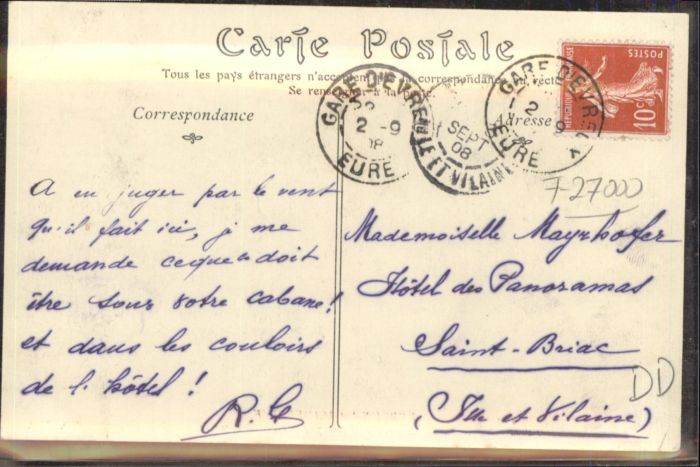 Carte Postale
Tous les pays étrangers n'acceptent pas la correspondance au recto
Se renseigner à la Poste
Correspondance
Adresse
GARE D'EVREUX
2 -9
08
EURE
SEPT
08
ILLE ET VILAINE
GARE D'EVREUX
2
EURE
POSTES
10c
F 27000
A en juger par le vent
qu'il fait ici, je me
demande ce que ce doit
être sous votre cabane!
et dans les couloirs
de l'hôtel!
Mademoiselle Mayrhofer
Hôtel des Panoramas
Saint-Briac
(Ille et Vilaine)
DD